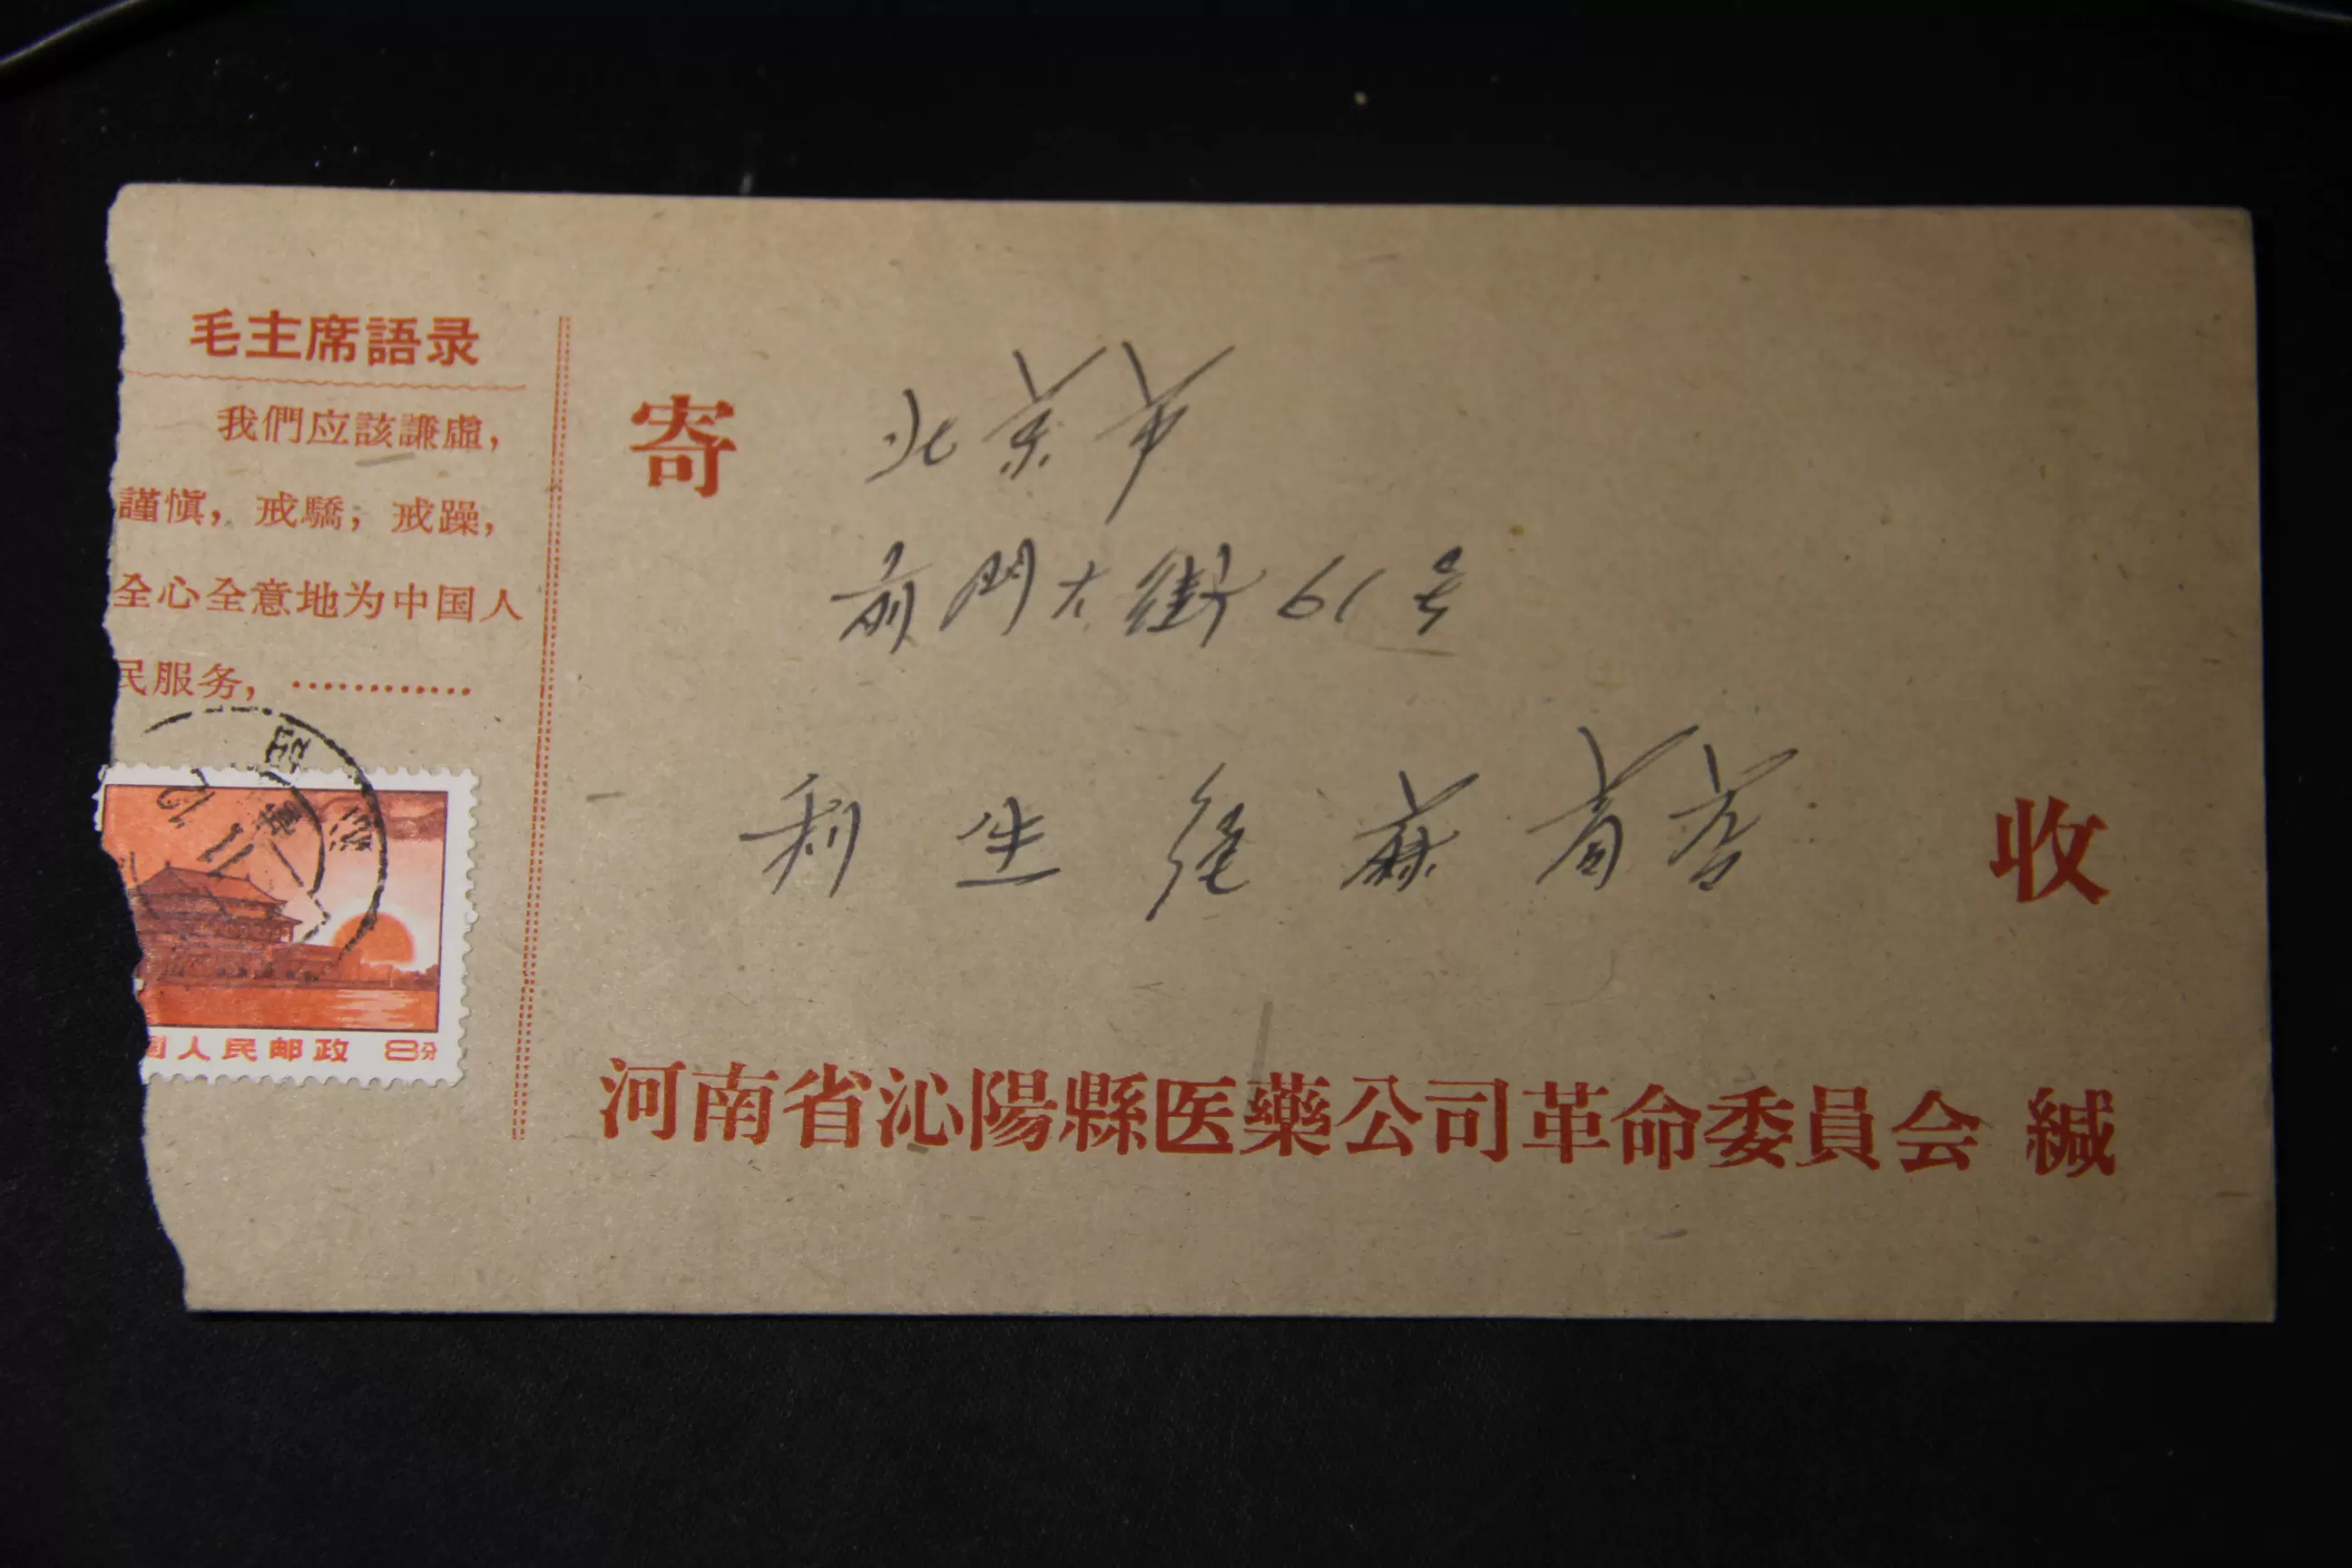 毛主席語录
我們应該謙虛，
謹愼，戒驕，戒躁，
全心全意地为中国人
民服务，…………
国人民邮政 8分
寄
北京市
前門大街61号
利生
收
河南省沁陽縣医藥公司革命委員会 緘